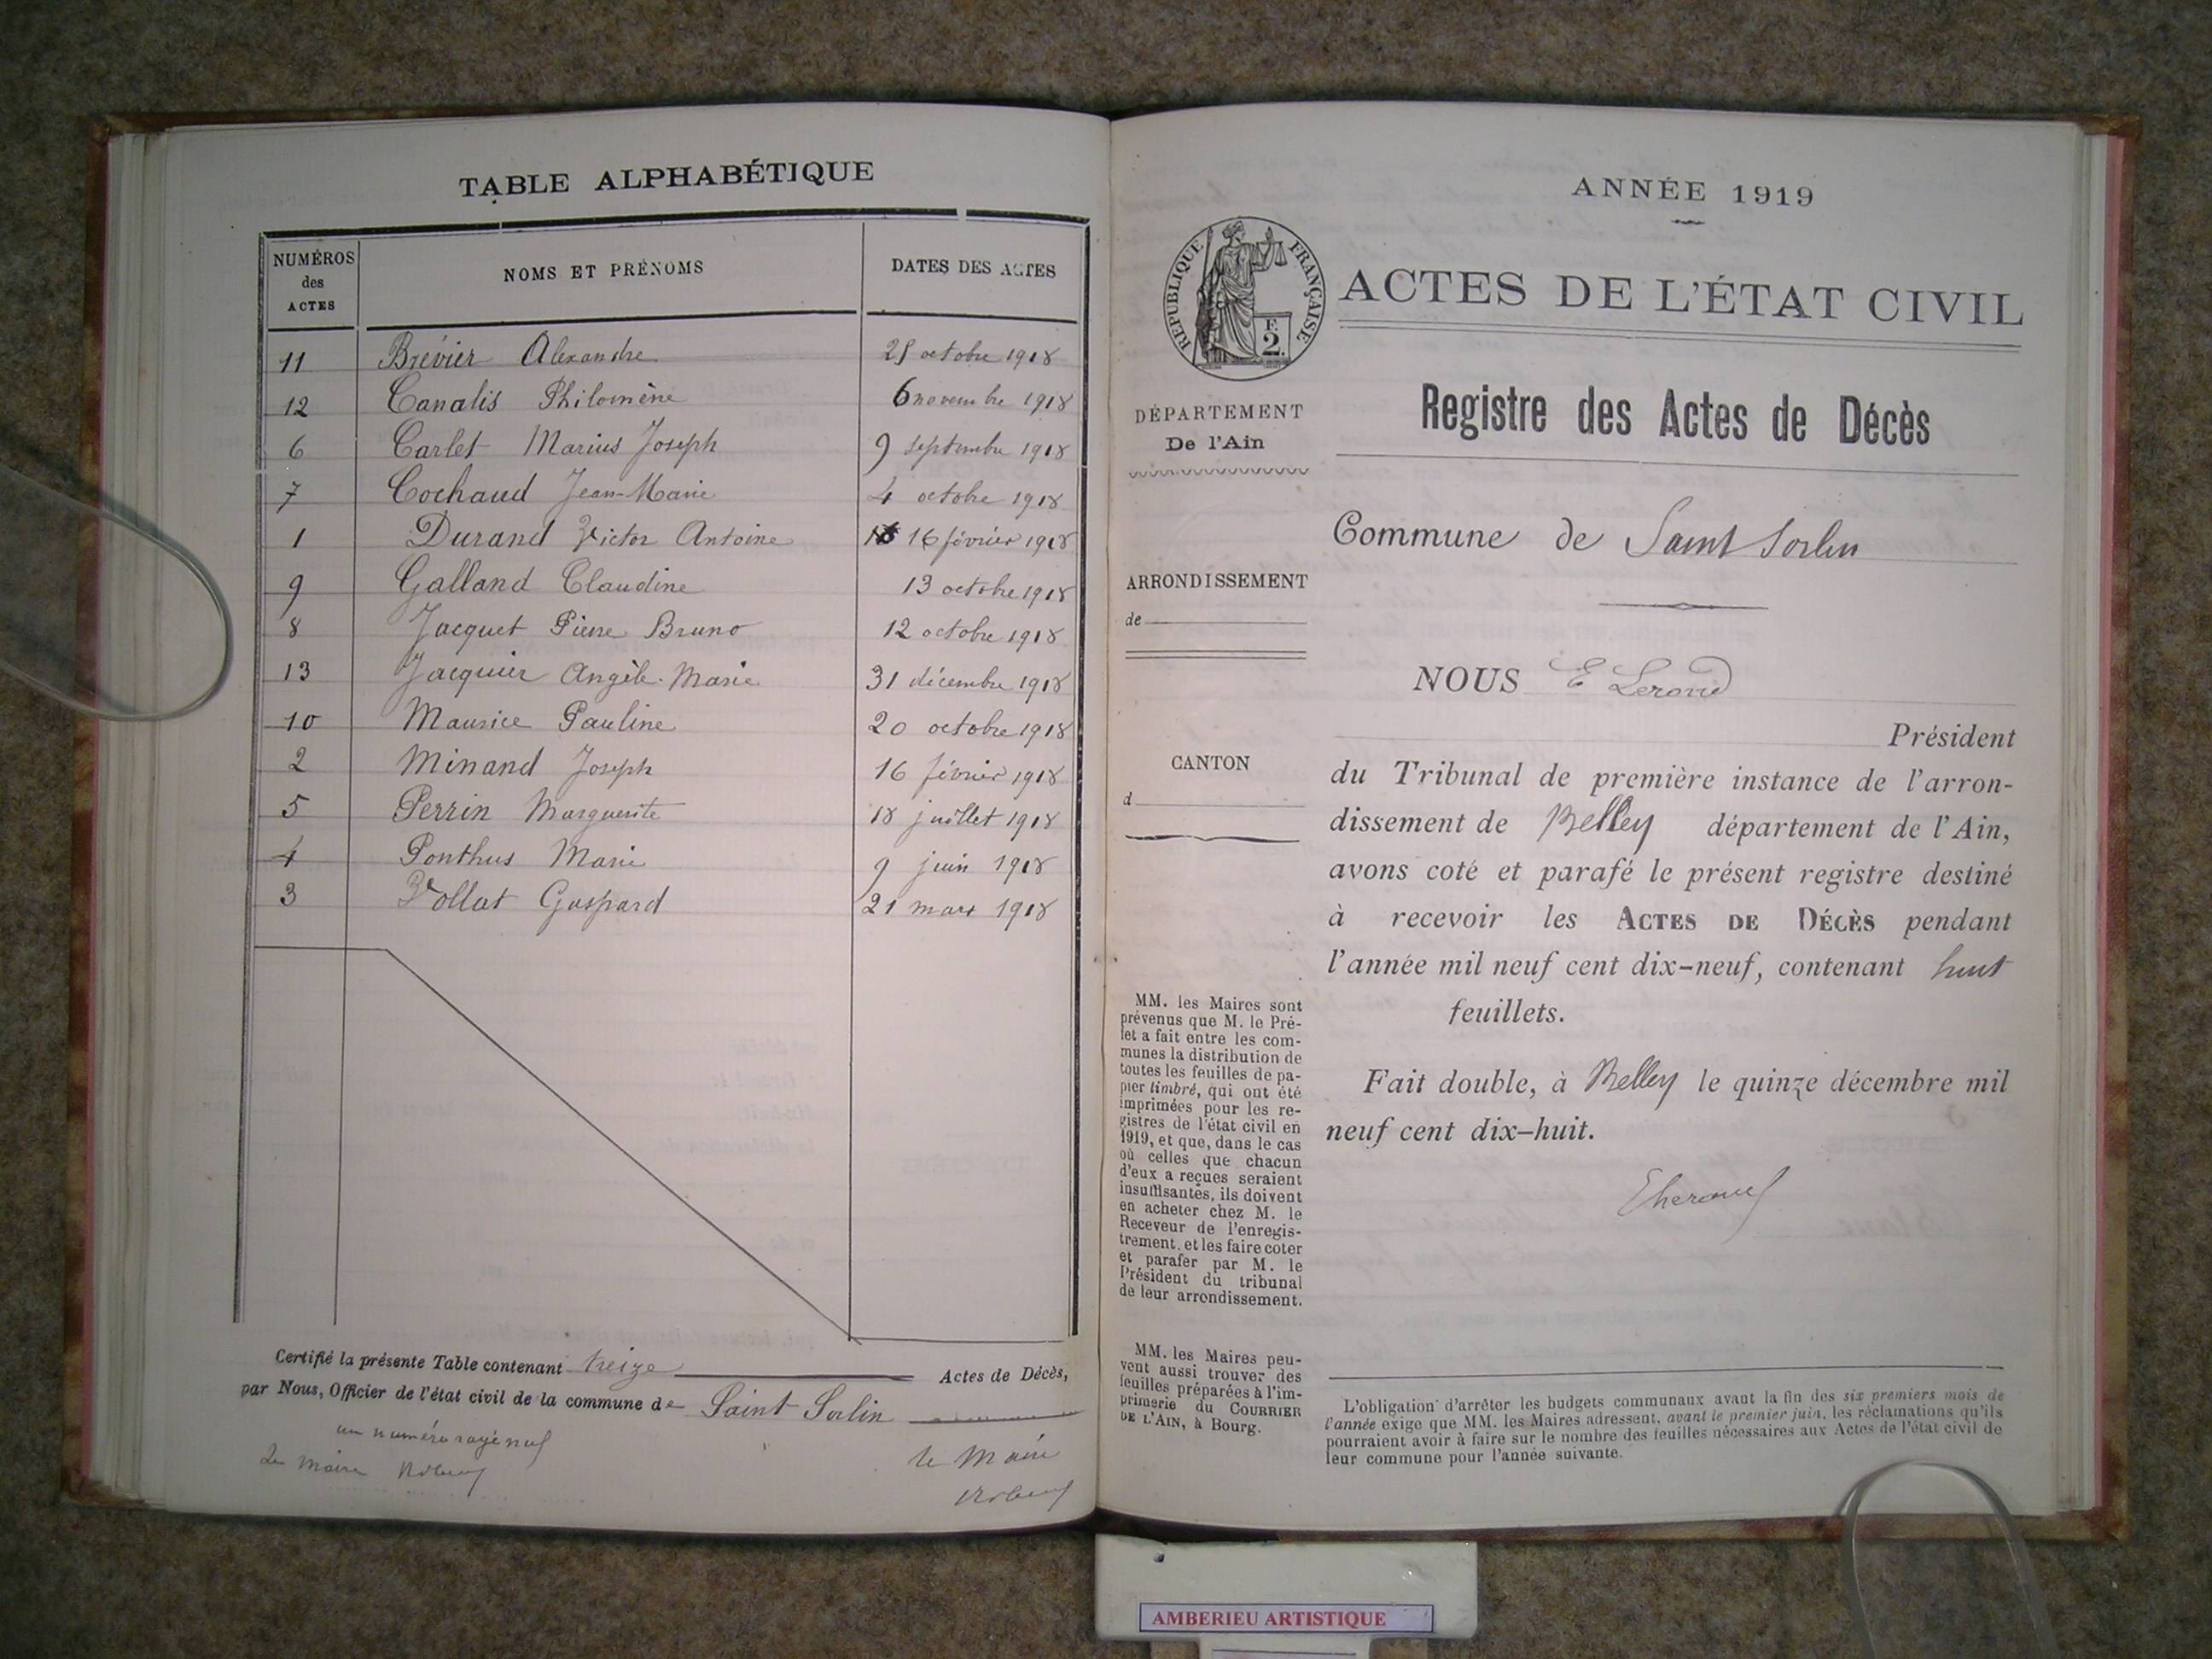 TABLE ALPHABÉTIQUE
NUMÉROS des ACTES NOMS ET PRÉNOMS DATES DES ACTES
11 Brévier Alexandre octobre 1918
12 Canalis Philomène 6 novembre 1918
6 Carlet Marius Joseph 9 septembre 1918
7 Cochaud Jean-Marie 4 octobre 1918
1 Durand Victor Antoine 16 février 1918
9 Galland Claudine 13 octobre 1918
8 Jacquet Pierre Bruno 12 octobre 1918
13 Jacquier Angèle-Marie 31 décembre 1918
10 Maurice Pauline 20 octobre 1918
2 Minand Joseph 16 février 1918
5 Perrin Marguerite 18 juillet 1918
4 Ponthus Marie 9 juin 1918
3 Vollat Gaspard 21 mars 1918
Certifié la présente Table contenant treize Actes de Décès,
par Nous, Officier de l'état civil de la commune de Saint Sorlin
un numéro rayé nul
Le maire
le Maire
ANNÉE 1919
RÉPUBLIQUE FRANÇAISE
F.
2.
ACTES DE L'ÉTAT CIVIL
DÉPARTEMENT
De l'Ain
Registre des Actes de Décès
Commune de Saint Sorlin
ARRONDISSEMENT
de
NOUS E
Président
CANTON
d
du Tribunal de première instance de l'arron-
dissement de Belley département de l'Ain,
avons coté et parafé le présent registre destiné
à recevoir les ACTES DE DÉCÈS pendant
l'année mil neuf cent dix-neuf, contenant huit
feuillets.
Fait double, à Belley le quinze décembre mil
neuf cent dix-huit.
MM. les Maires sont
prévenus que M. le Pré-
fet a fait entre les com-
munes la distribution de
toutes les feuilles de pa-
pier timbré, qui ont été
imprimées pour les re-
gistres de l'état civil en
1919, et que, dans le cas
où celles que chacun
d'eux a reçues seraient
insuffisantes, ils doivent
en acheter chez M. le
Receveur de l'enregis-
trement, et les faire coter
et parafer par M. le
Président du tribunal
de leur arrondissement.
MM. les Maires peu-
vent aussi trouver des
feuilles préparées à l'im-
primerie du COURRIER
DE L'AIN, à Bourg.
L'obligation d'arrêter les budgets communaux avant la fin des six premiers mois de
l'année exige que MM. les Maires adressent, avant le premier juin, les réclamations qu'ils
pourraient avoir à faire sur le nombre des feuilles nécessaires aux Actes de l'état civil de
leur commune pour l'année suivante.
AMBERIEU ARTISTIQUE